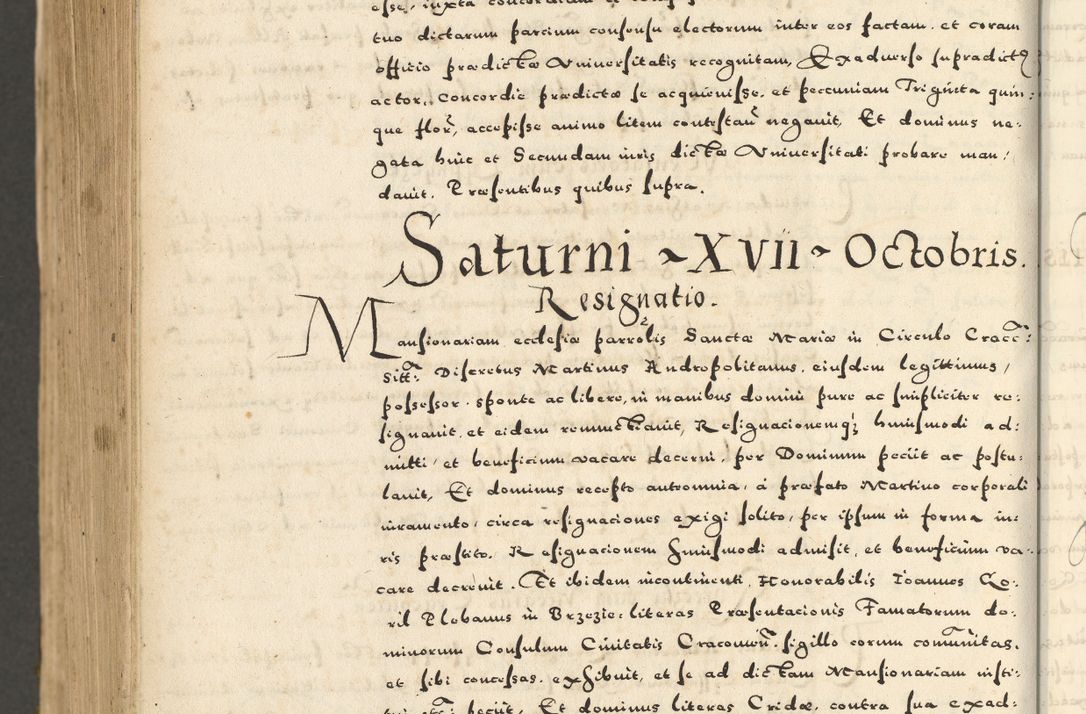 esse, iuxta concordiam
tuo dictarum parcium consensu electorum inter eos factam, et coram
officio prædictæ Vniuersitatis recognitam, Exaduerso supradictq
actor, Concordie prædictæ se acquieuisse, et peccuniam Triginta quin:
que flor, accepisse animo litem contestan negauit, Et dominus ne:
gata huic et Secundam iuris dictæ Vniuersitati probare man:
dauit. Præsentibus quibus supra.
Saturni ~ XVII ~ Octobris.
Resignatio.
Mansionariam ecclesiæ parrolis Sanctæ Mariæ in Circulo Cracc:
Sitt: Discretus Martinus Andropolitanus, eiusdem legittimus,
possessor, sponte ac libere, in manibus domini pure ac simpliciter re:
signauit, et eidem renunctiauit, Resignacionemq; huiusmodi ad:
mitti, et beneficium vacare decerni, per Dominum peciit ac postu:
lauit, Et dominus recepto autromnia, á præfato Martino corporali
iuramento, circa resignaciones exigi solito, per ipsum in forma iu:
ris præstito, Resignacionem huiusmodi admisit, et beneficium va:
care decreuit. Et ibidem incontinenti, Honorabilis Ioannes Go:
ril Plebanus in Brzezie, literas Præsentacionis Famatorum do:
minorum Consulum Ciuitatis Cracouien, sigillo eorum comunitas,
et sibi concessas, exhibuit, et se ad dictam Mansionariam insti:
tui etc: peciit, Et dominus literas Cridæ, contra sua exad: